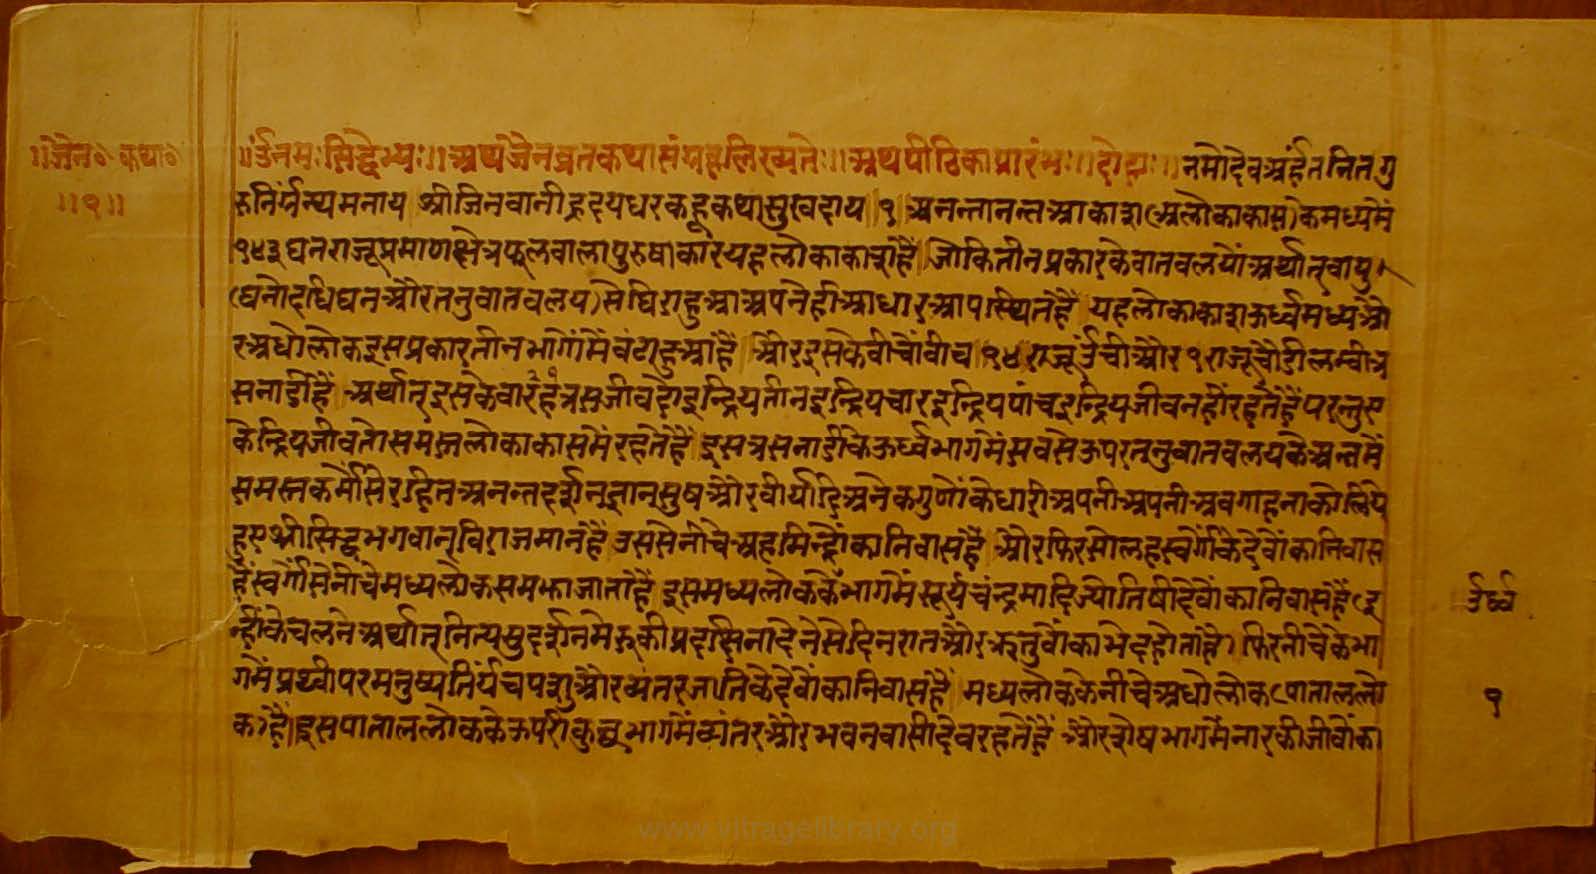 ॥जैन० कथा०
॥१॥
॥ॐनमःसिद्धेभ्यः॥अथजैनव्रतकथासंग्रहलिख्यतेः॥अथपीठिकाप्रारंभः॥दोहाः॥नमोदेवअर्हंतनितगु
रुनिर्ग्रन्थमनाय श्रीजिनवानीह्रदयधरकहूकथासुखदाय ।१ अनन्तानन्तआकाश(अलोकाकास)केमध्यमें
१४३घनराजूप्रमाणक्षेत्रफलवालापुरुषाकारयहलोकाकाशहै जोकितीनप्रकारकेवातवलयोंअर्थात्वायु
(घनोदधिघनऔरतनुवातवलय)सेघिराहुआअपनेहीआधारआपस्थितहै यहलोकाकाशऊर्ध्वमध्यऔ
रअधोलोकइसप्रकारतीनभागोंमेंबंटाहुआहै औरइसकेबीचोंबीच१४राजूउँचीऔर१राजूचौडीलम्बीत्र
सनाडीहै अर्थात्इसकेबारहत्रसजीवदोइन्द्रियतीनइन्द्रियचारइन्द्रियपांचइन्द्रियजीवनहींरहतेहैंपरन्तुए
केन्द्रियजीवतोसमस्तलोकाकासमेंरहतेहैं इसत्रसनाडीकेऊर्ध्वभागमेंसबसेऊपरतनुवातवलयकेअन्तमें
समस्तकर्मोंसेरहितअनन्तदर्शनज्ञानसुषऔरवीर्यादिअनेकगुणोंकेधारीअपनीअपनीअवगाहनाकोलिये
हुएश्रीसिद्धभगवान्विराजमानहैं उससेनीचेअहमिन्द्रोंकानिवासहै औरफिरसोलहस्वर्गोंकेदेवोंकानिवास
हैस्वर्गोंसेनीचेमध्यलोकसमझाजाताहै इसमध्यलोककेभागमेंसूर्यचंन्द्रमादिज्योतिषीदेवोंकानिवासहै(इ
न्हींकेचलनेअर्थात्नित्यसुदर्शनमेरुकीप्रदक्षिनादेनेसेदिनरातऔरऋतुवोंकाभेदहोताहै) फिरनीचेकेभा
गमेंप्रथ्वीपरमनुष्यतिर्यंचपशुऔरव्यंतरजातिकेदेवोंकानिवासहै मध्यलोककेनीचेअधोलोक(पाताललो
क)है इसपाताललोककेऊपरीकुछभागमेंव्यंतरऔरभवनवासीदेवरहतेहैं औरशेषभागमेंनारकीजीवोंका
उर्ध्व
१
www.vitragelibrary.org